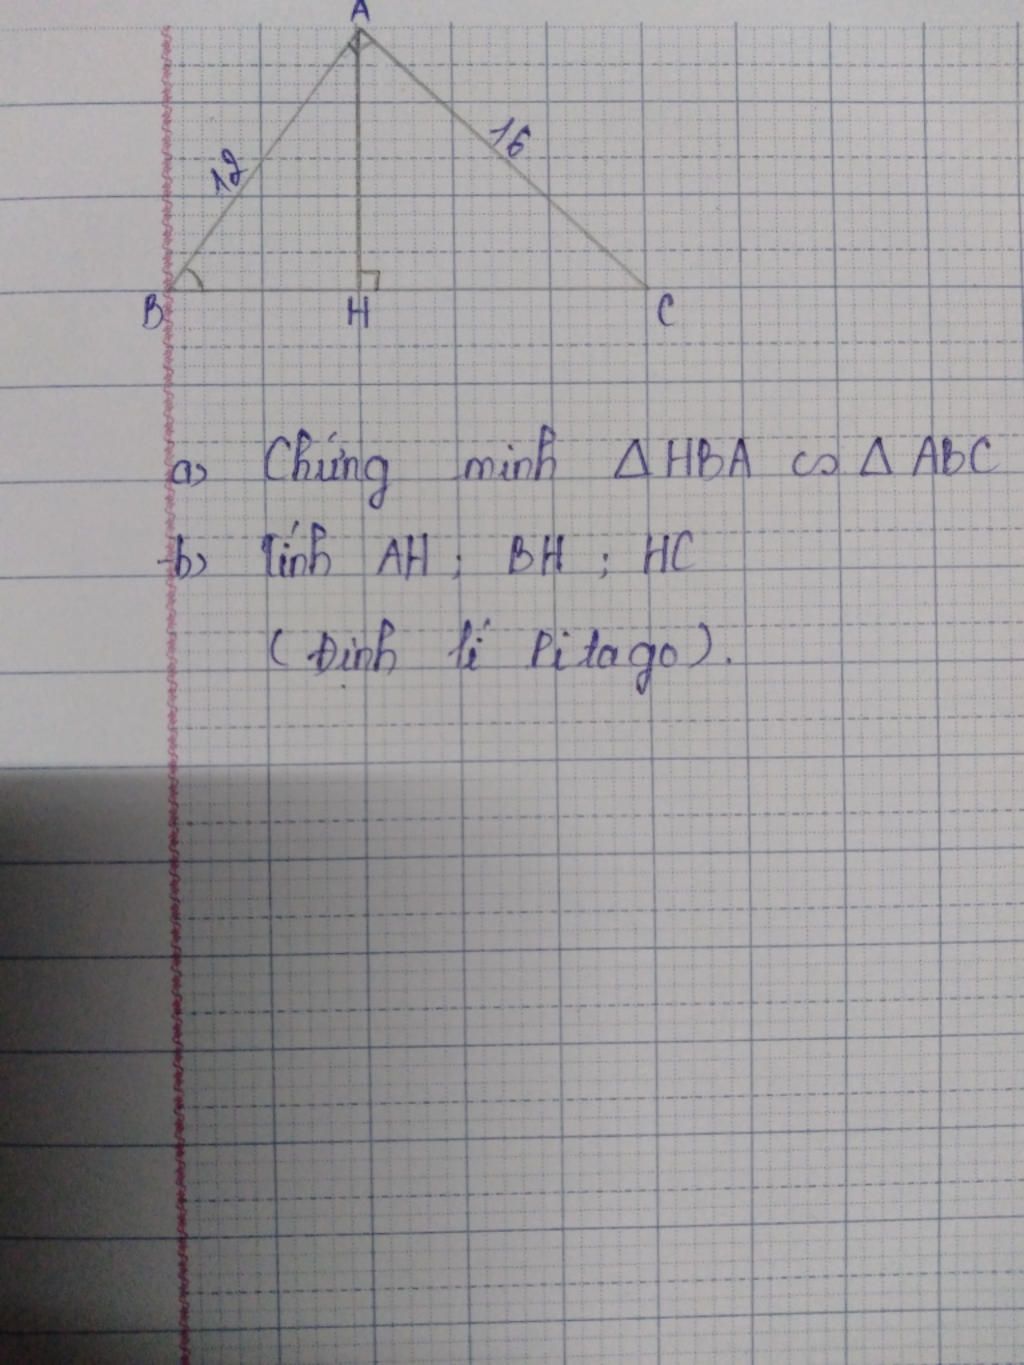 A
12
16
B H C
a) Chứng minh Δ HBA ∽ Δ ABC
b) Tính AH ; BH ; HC
(Định lí Pitago).